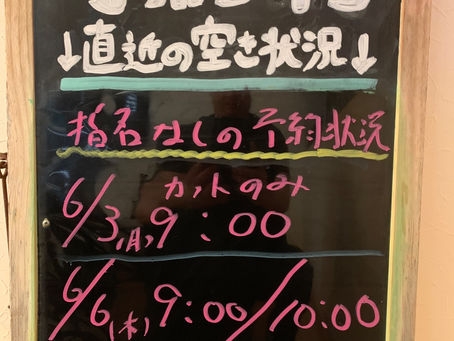 ↓直近の空き状況↓
指名なしの予約状況
カットのみ
6/3(月)9:00
6/6(木)9:00/10:00